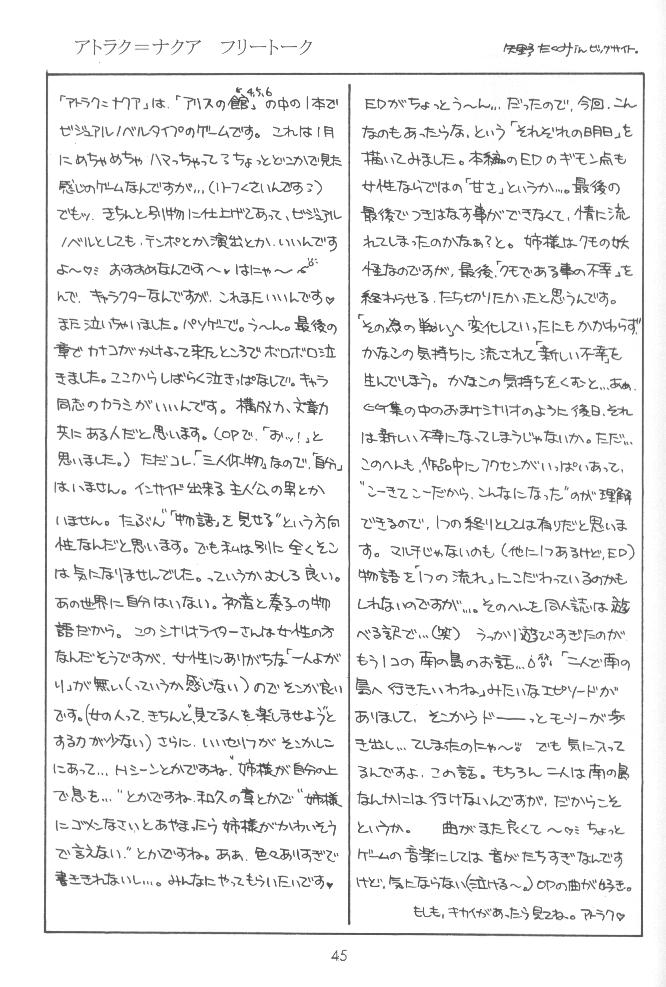 アトラク＝ナクア　フリートーク
矢野たくみinビッグサイト。
4,5,6
「アトラク＝ナクア」は、「アリスの館」の中の1本で
ビジュアルノベルタイプのゲームです。これは1月
にめちゃめちゃハマっちゃってるちょっとどこかで見た
感じのゲームなんですが…(リーフくさいんです?)
でもッ、きちんと別物に仕上げてあって、ビジュアル
ノベルとしても、テンポとか演出とか、いいんです
よ〜♡ おすすめなんです〜♥はにゃ〜
んで、キャラクターなんですが、これまたいいんです♡
また泣いちゃいました。パソゲーで。う〜ん。最後の
章でカナコがかけよって来たところでボロボロ泣
きました。ここからしばらく泣きっぱなしで。キャラ
同志のカラミがいいんです。構成力、文章力
共にある人だと思います。(OPで、「おッ!」と
思いました。) ただコレ、「三人体物」なので、「自分」
はいません。インサイド出来る主人公の男とか
いません。たぶん“「物語」を見せる”という方向
性なんだと思います。でも私は別に全くそこ
は気になりませんでした。っていうかむしろ良い。
あの世界に自分はいない。初音と奏子の物
語だから。このシナリオライターさんは女性の方
なんだそうですが、女性にありがちな「一人よが
り」が無い(っていうか感じない)のでそこが良い
です。(女の人って、きちんと“見てる人を楽しませよう”と
する力が少ない) さらに、いいセリフがそこかしこ
にあって…Hシーンとかですね。“姉様が自分の上
で息を…”とかですね、和久の章とかで“姉様
にゴメンなさいとあやまったら姉様がかわいそう
で言えない。”とかですね。ああ、色々ありすぎで
書ききれないし…。みんなにやってもらいたいです♥
EDがちょっとう〜ん…だったので、今回、こん
なのもあったらな、という「それぞれの明日」を
描いてみました。本編のEDのギモン点も
女性ならではの「甘さ」というか…。最後の
最後でつきはなす事ができなくて、情に流
れてしまったのかなぁ?と。姉様はクモの妖
怪なのですが、最後、「クモである事の不幸」を
終わらせる、たち切りたかったと思うんです。
「その為の戦い」へ変化していったにもかかわらず、
かなこの気持ちに流されて「新しい不幸」を
生んでしまう。かなこの気持ちをくむと…あぁ、
CG集の中のおまけシナリオのように後日、それ
は新しい不幸になってしまうじゃないか。ただ…
このへんも、作品中にフクセンがいっぱいあって、
“こーきてこーだから、こんなになった”のが理解
できるので、1つの終りとしては有りだと思いま
す。マルチじゃないのも(他に1つあるけど、ED)
物語を「1つの流れ」にこだわっているのかも
しれないのですが…。そのへんを同人誌は遊
べる訳で…(笑) うっかり遊びすぎたのが
もう1コの南の島のお話…。「二人で南の
島へ行きたいわね」みたいなエピソードが
ありまして、そこからドーーーっとモーリーが歩
き出し…てしまったのにゃ〜 でも気に入って
るんですよ、この話。もちろん二人は南の島
なんかには行けないんですが、だからこそ
というか。 曲がまた良くて〜♡ ちょっと
ゲームの音楽にしては音がたちすぎなんです
けど、気にならない(泣ける〜。) OPの曲が好き。
もしも、キカイがあったら見てね。アトラク♡
45